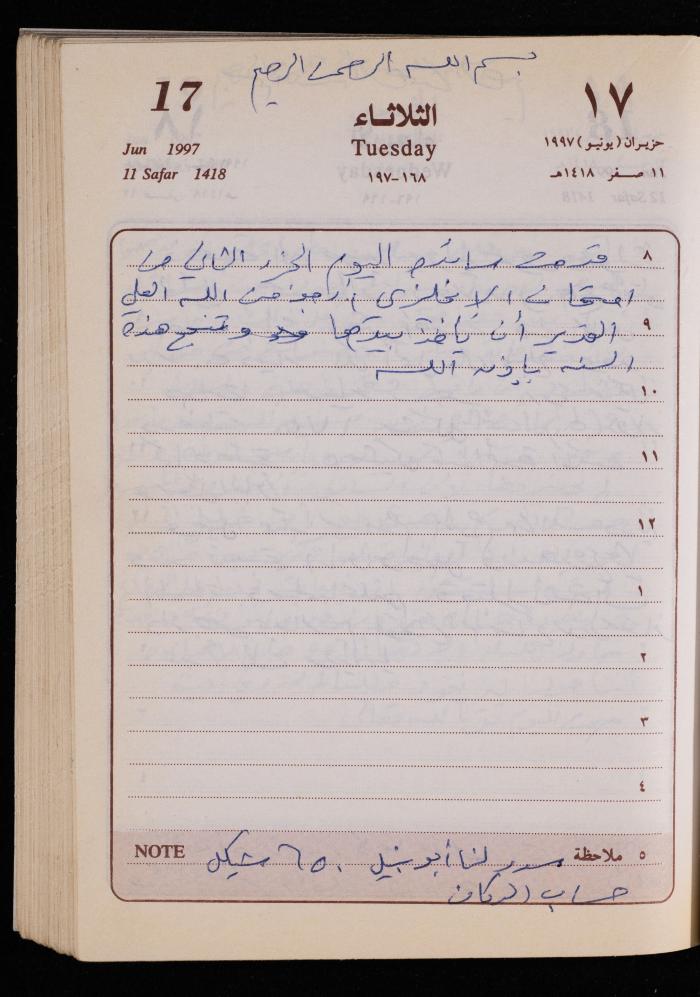 بسم الله الرحمن الرحيم
17
الثلاثاء
١٧
Jun 1997
Tuesday
حزيران (يونيو) ١٩٩٧
11 Safar 1418
١٦٨-١٩٧
١١ صفر ١٤١٨هـ
٨ قدمت ساندي اليوم الجزء الثاني من
امتحان الإنجلزي أرجو من الله العلي
٩ القدير أن يأخذ بيدها وتنجح هذه
السنه بإذن الله
١٠
١١
١٢
١
٢
٣
٤
NOTE ٥ ملاحظة سدد لنا أبو نبيل ٦٥٠ شيكل
حساب الدكان